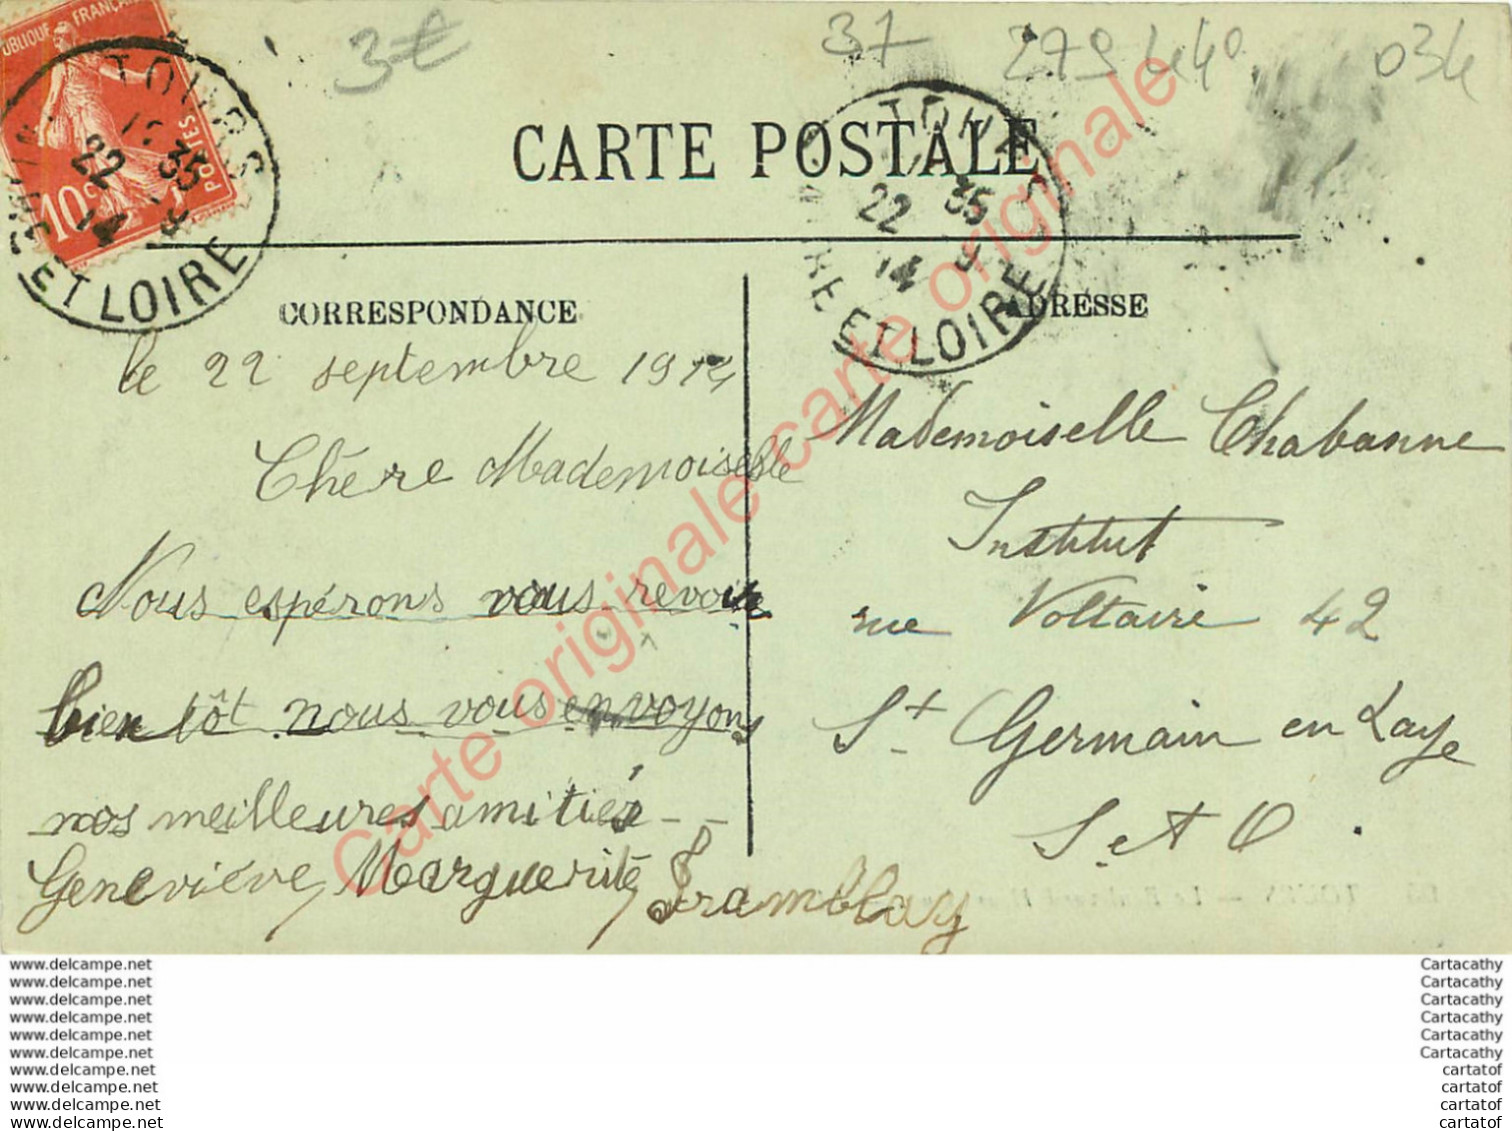 3€
37
279440
034
RÉPUBLIQUE FRANÇAISE
POSTES
10c
TOURS
22 35
14 9
INDRE ET LOIRE
CARTE POSTALE
TOURS
22 35
14 9
INDRE ET LOIRE
CORRESPONDANCE
le 22 septembre 1914
Chère Mademoiselle
Nous espérons vous revoir
bien tôt nous vous envoyons
nos meilleures amitiés
Geneviève, Marguerite, Framblay
ADRESSE
Mademoiselle Chabanne
Institut
rue Voltaire 42
St Germain en Laye
S. et O.
Carte originale carte originale
www.delcampe.net
www.delcampe.net
www.delcampe.net
www.delcampe.net
www.delcampe.net
www.delcampe.net
www.delcampe.net
www.delcampe.net
www.delcampe.net
www.delcampe.net
Cartacathy
Cartacathy
Cartacathy
Cartacathy
Cartacathy
Cartacathy
cartatof
cartatof
cartatof
cartatof